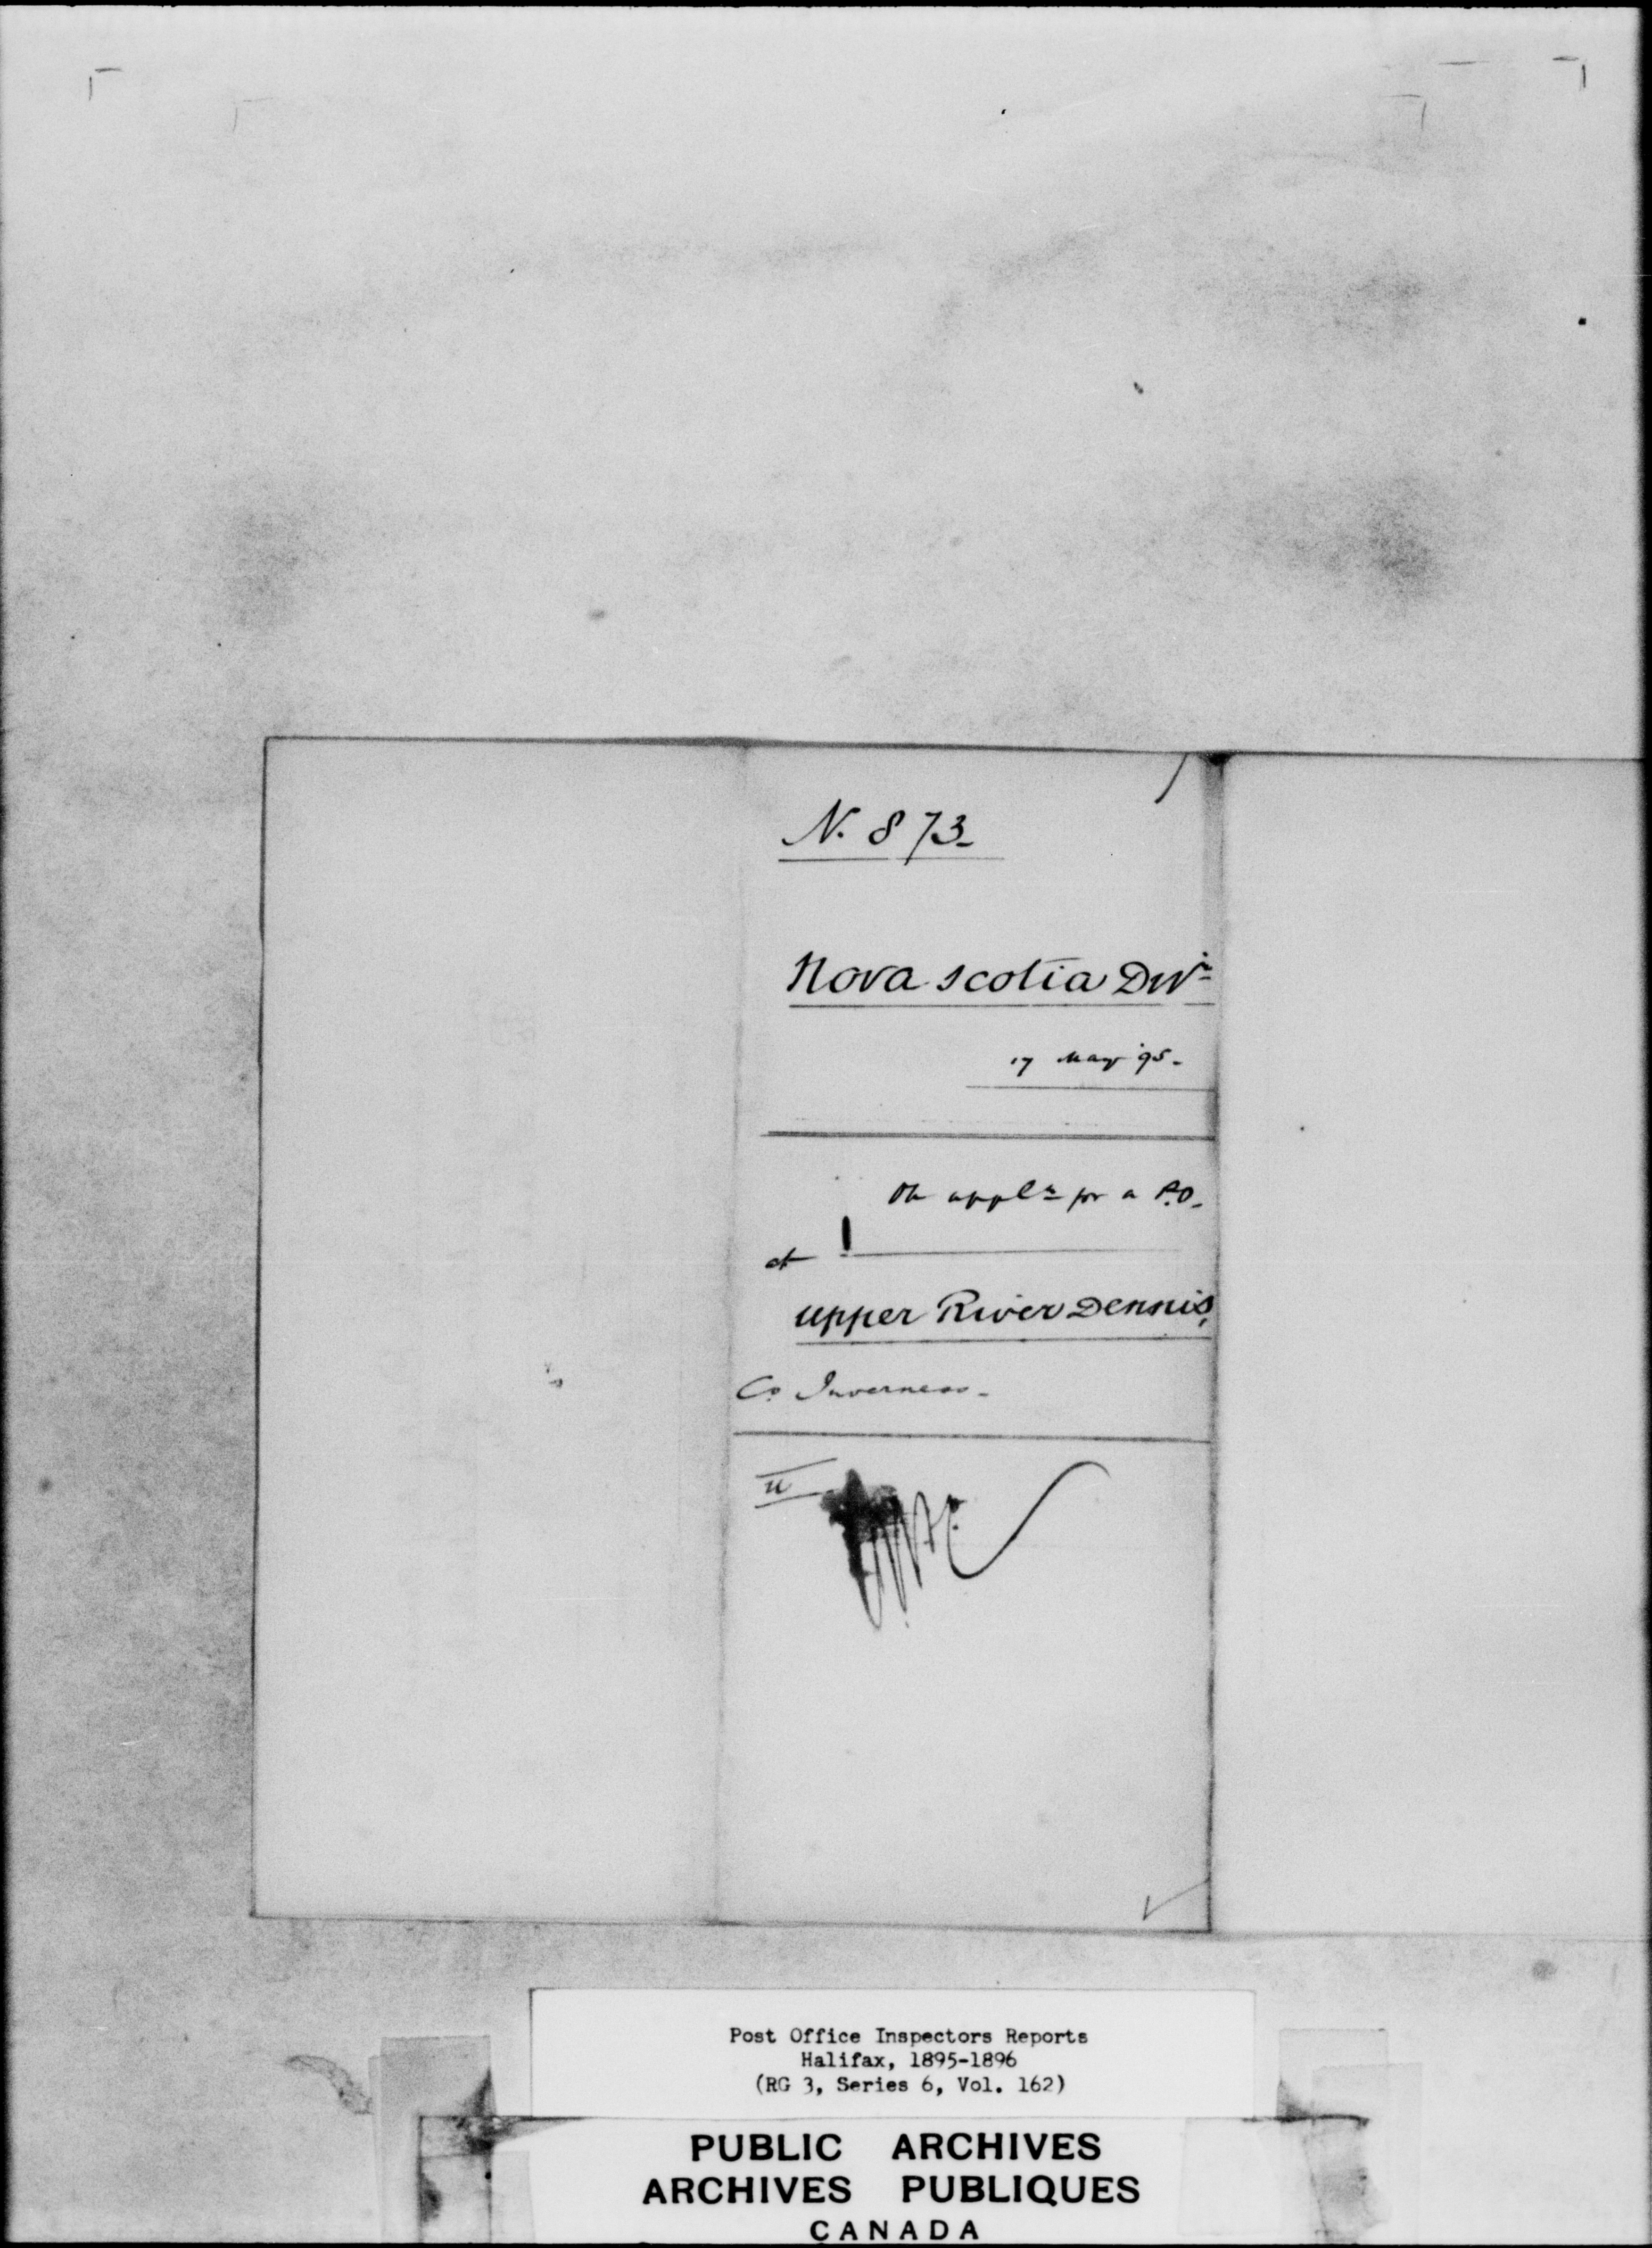 N. 873-
Nova Scotia Divn
17 May '95-
On appln for a P.O.
at
Upper River Dennis,
Co. Inverness-
Post Office Inspectors Reports
Halifax, 1895-1896
(RG 3, Series 6, Vol. 162)
PUBLIC ARCHIVES
ARCHIVES PUBLIQUES
CANADA